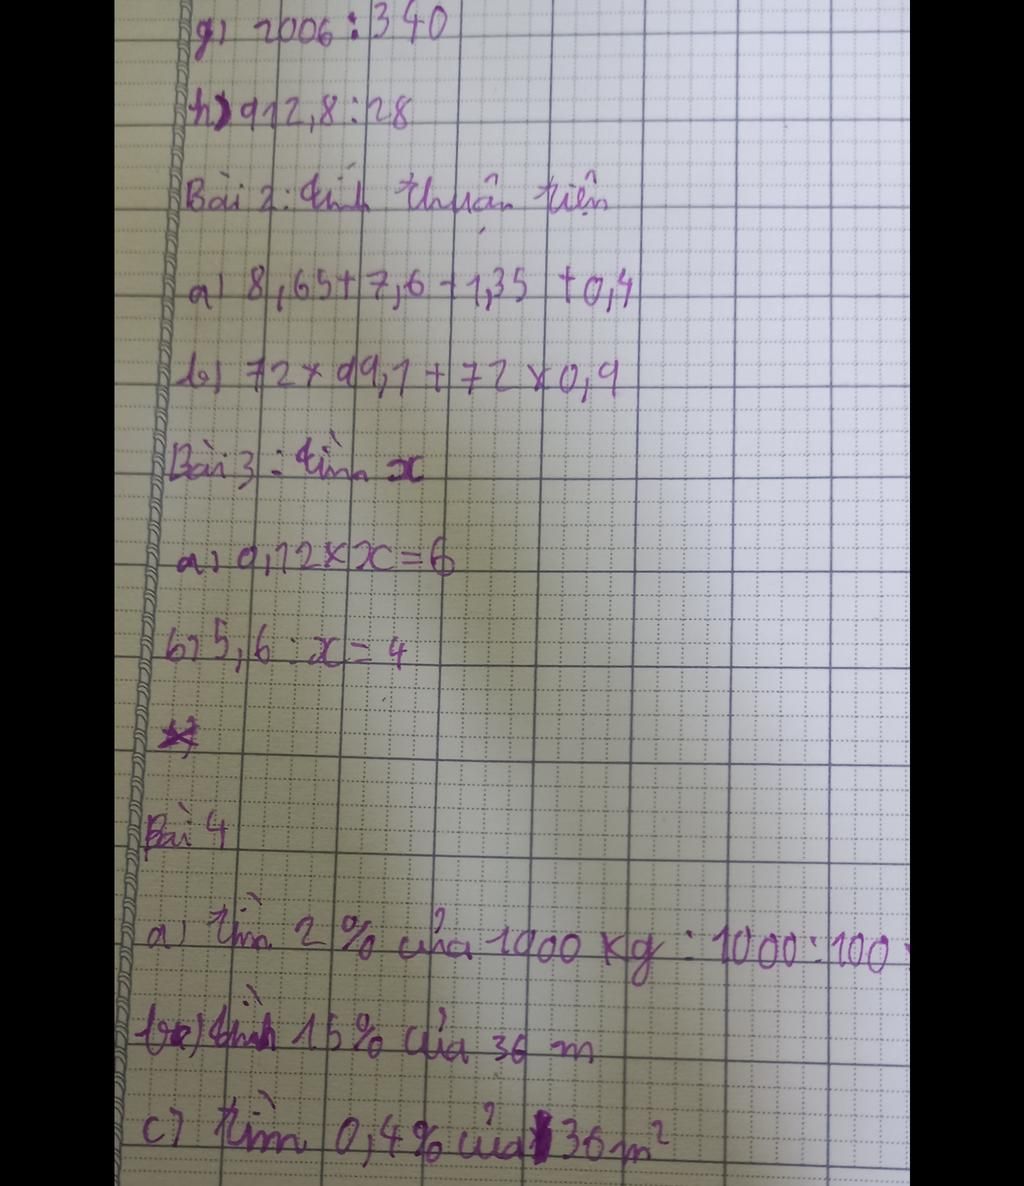 g) 2006 : 340
h) 912,8 : 28
Bài 2: tính thuận tiện
a) 8,65 + 7,6 + 1,35 + 0,4
b) 72 x 99,1 + 72 x 0,9
Bài 3: tìm x
a) 0,12 x x = 6
b) 5,6 : x = 4
Bài 4
a) tìm 2 % của 1000 kg : 1000 : 100
b) tìm 15% của 36 m
c) tìm 0,4% của 36 m²